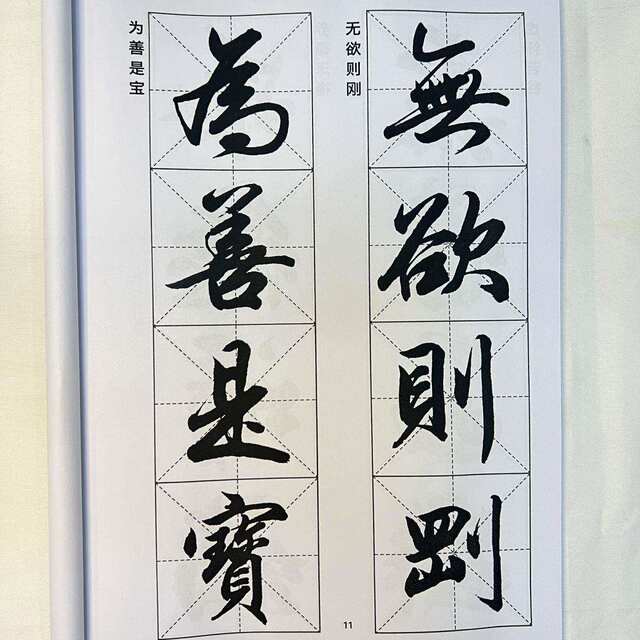 无欲则刚
無欲則剛
为善是宝
為善是寶
11